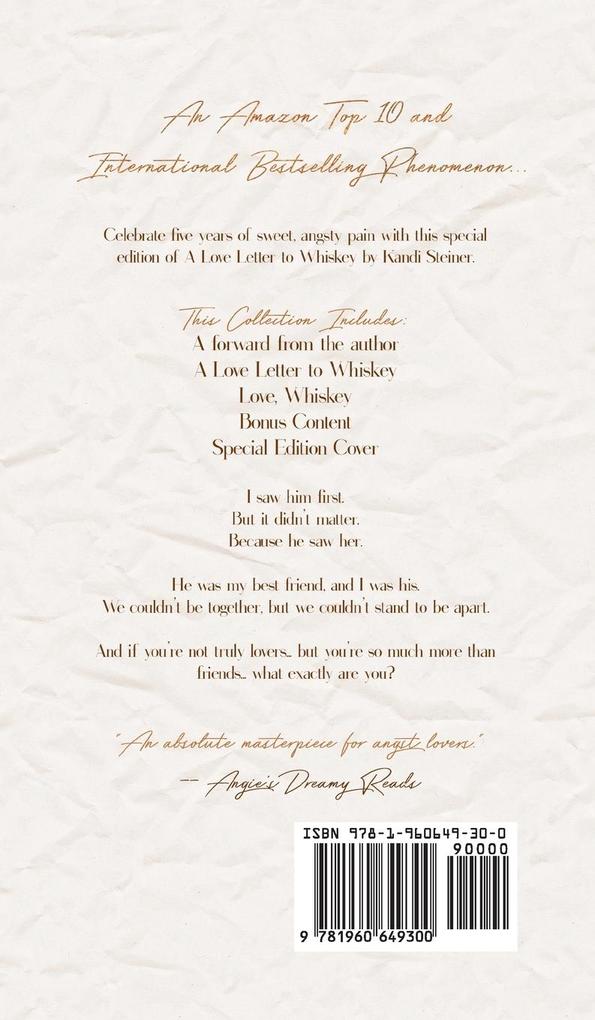 An Amazon Top 10 and
International Bestselling Phenomenon...
Celebrate five years of sweet, angsty pain with this special
edition of A Love Letter to Whiskey by Kandi Steiner.
This Collection Includes:
A forward from the author
A Love Letter to Whiskey
Love, Whiskey
Bonus Content
Special Edition Cover
I saw him first.
But it didn't matter.
Because he saw her.
He was my best friend, and I was his.
We couldn't be together, but we couldn't stand to be apart.
And if you're not truly lovers... but you're so much more than
friends... what exactly are you?
"An absolute masterpiece for angst lovers."
-- Angie's Dreamy Reads
ISBN 978-1-960649-30-0
90000
9 781960 649300